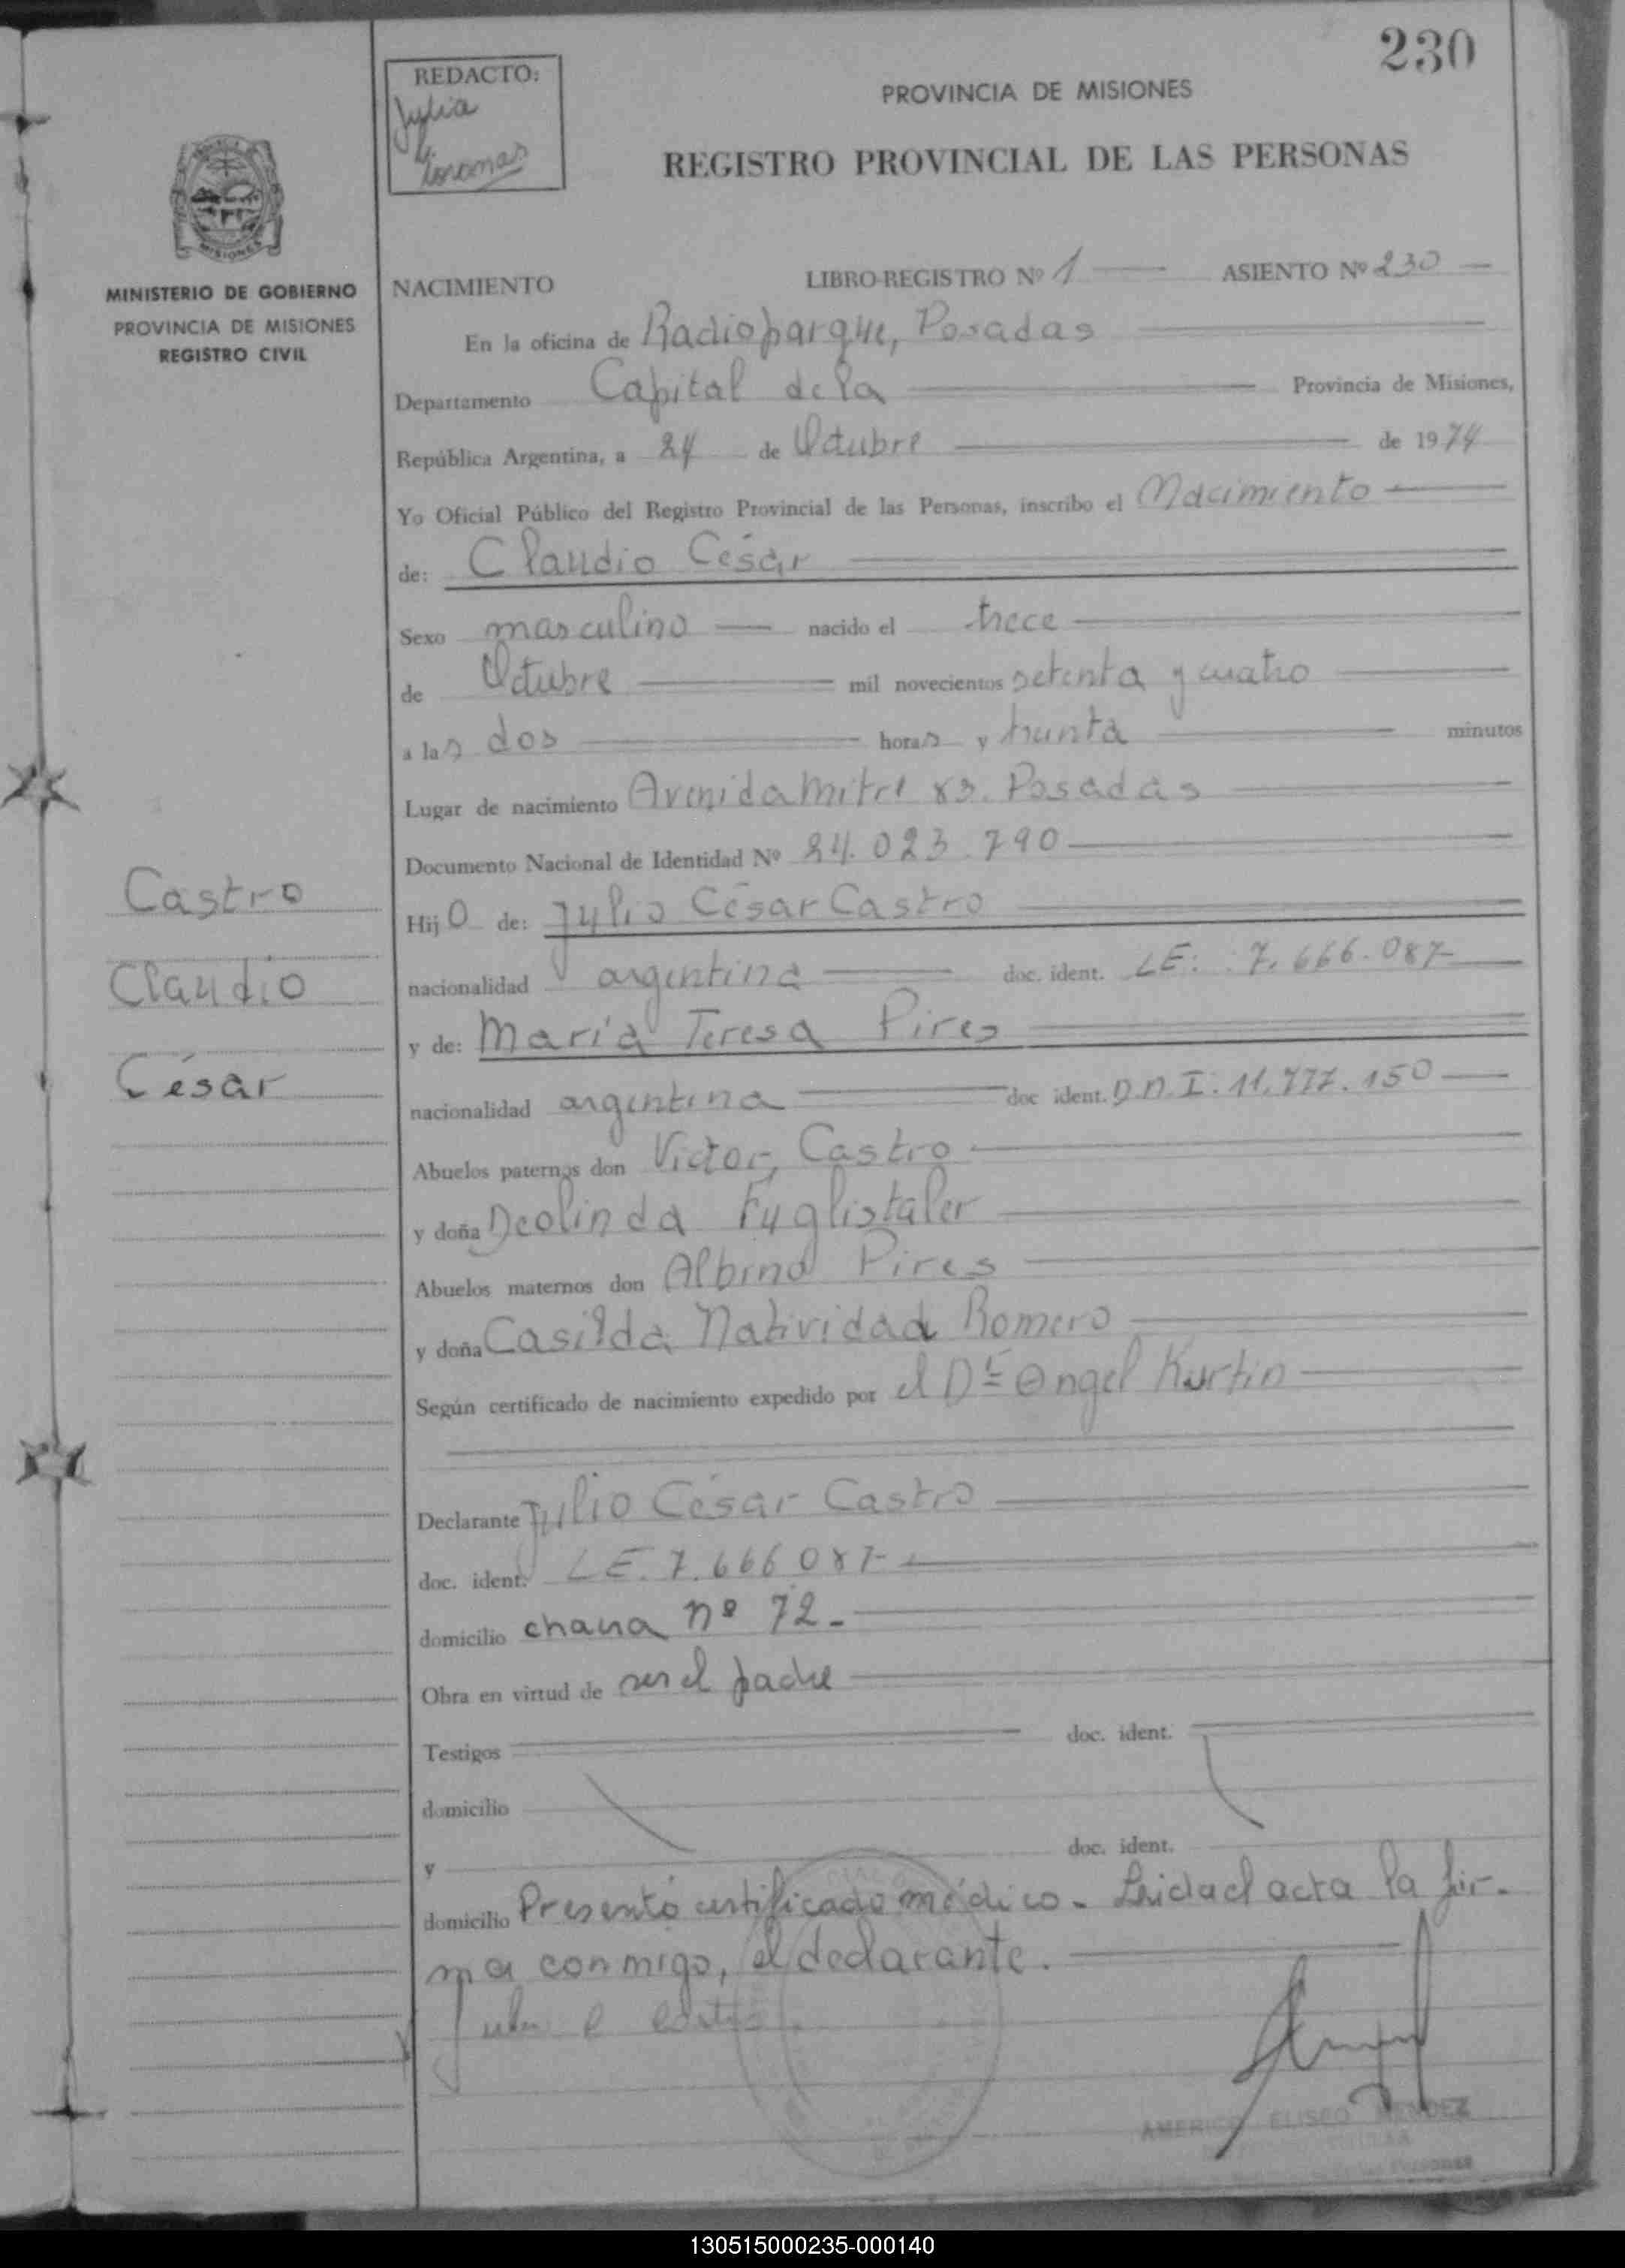 230
REDACTO:
Julia
PROVINCIA DE MISIONES
REGISTRO PROVINCIAL DE LAS PERSONAS
MISIONES
MINISTERIO DE GOBIERNO
PROVINCIA DE MISIONES
REGISTRO CIVIL
NACIMIENTO LIBRO-REGISTRO Nº 1 ASIENTO Nº 230
En la oficina de Radioparque, Posadas
Departamento Capital de la Provincia de Misiones,
República Argentina, a 24 de Octubre de 1974
Yo Oficial Público del Registro Provincial de las Personas, inscribo el Nacimiento
de: Claudio César
Sexo masculino nacido el trece
de Octubre mil novecientos setenta y cuatro
a las dos horas y treinta minutos
Lugar de nacimiento Avenida Mitre 83. Posadas
Documento Nacional de Identidad Nº 24.023.790
Hijo de: Julio César Castro
nacionalidad argentina doc. ident. LE: 7.666.087
y de: María Teresa Pires
nacionalidad argentina doc ident. D.N.I: 11.777.150
Abuelos paternos don Victor, Castro
y doña Deolinda Fuglistaler
Abuelos maternos don Albino Pires
y doña Casilda Natividad Romero
Según certificado de nacimiento expedido por el Dr Angel Kurtin
Declarante Julio César Castro
doc. ident. LE. 7.666.087
domicilio chacra nº 72.
Obra en virtud de ser el padre
Testigos doc. ident.
domicilio
y doc. ident.
domicilio Presentó certificado médico. Leida el acta la fir-
ma conmigo, el declarante.
AMERICO ELISEO MENDEZ
Castro
Claudio
César
130515000235-000140